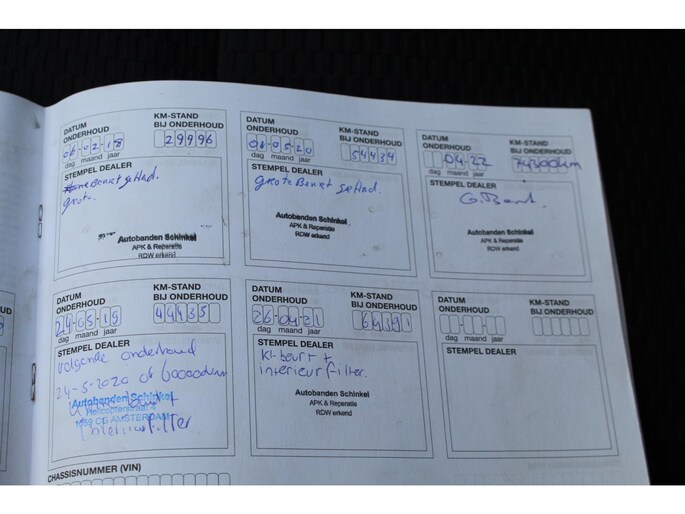 DATUM ONDERHOUD
KM-STAND BIJ ONDERHOUD
06-02-18
29996
dag maand jaar
STEMPEL DEALER
Beurt gehad.
grote.
Autobanden Schinkel
APK & Reparatie
RDW erkend
DATUM ONDERHOUD
KM-STAND BIJ ONDERHOUD
06-05-20
54434
dag maand jaar
STEMPEL DEALER
grote Beurt gehad.
Autobanden Schinkel
APK & Reparatie
RDW erkend
DATUM ONDERHOUD
KM-STAND BIJ ONDERHOUD
04-22
74300km
dag maand jaar
STEMPEL DEALER
G. Beurt.
Autobanden Schinkel
APK & Reparatie
RDW erkend
DATUM ONDERHOUD
KM-STAND BIJ ONDERHOUD
24-05-19
44435
dag maand jaar
STEMPEL DEALER
volgende onderhoud
24-5-2020 of 60000km
Autobanden Schinkel
Helicopterstraat
1059 CG AMSTERDAM
interieurfilter
DATUM ONDERHOUD
KM-STAND BIJ ONDERHOUD
26-04-21
dag maand jaar
STEMPEL DEALER
Kl-beurt +
interieurfilter.
Autobanden Schinkel
APK & Reparatie
RDW erkend
DATUM ONDERHOUD
KM-STAND BIJ ONDERHOUD
dag maand jaar
STEMPEL DEALER
CHASSISNUMMER (VIN)